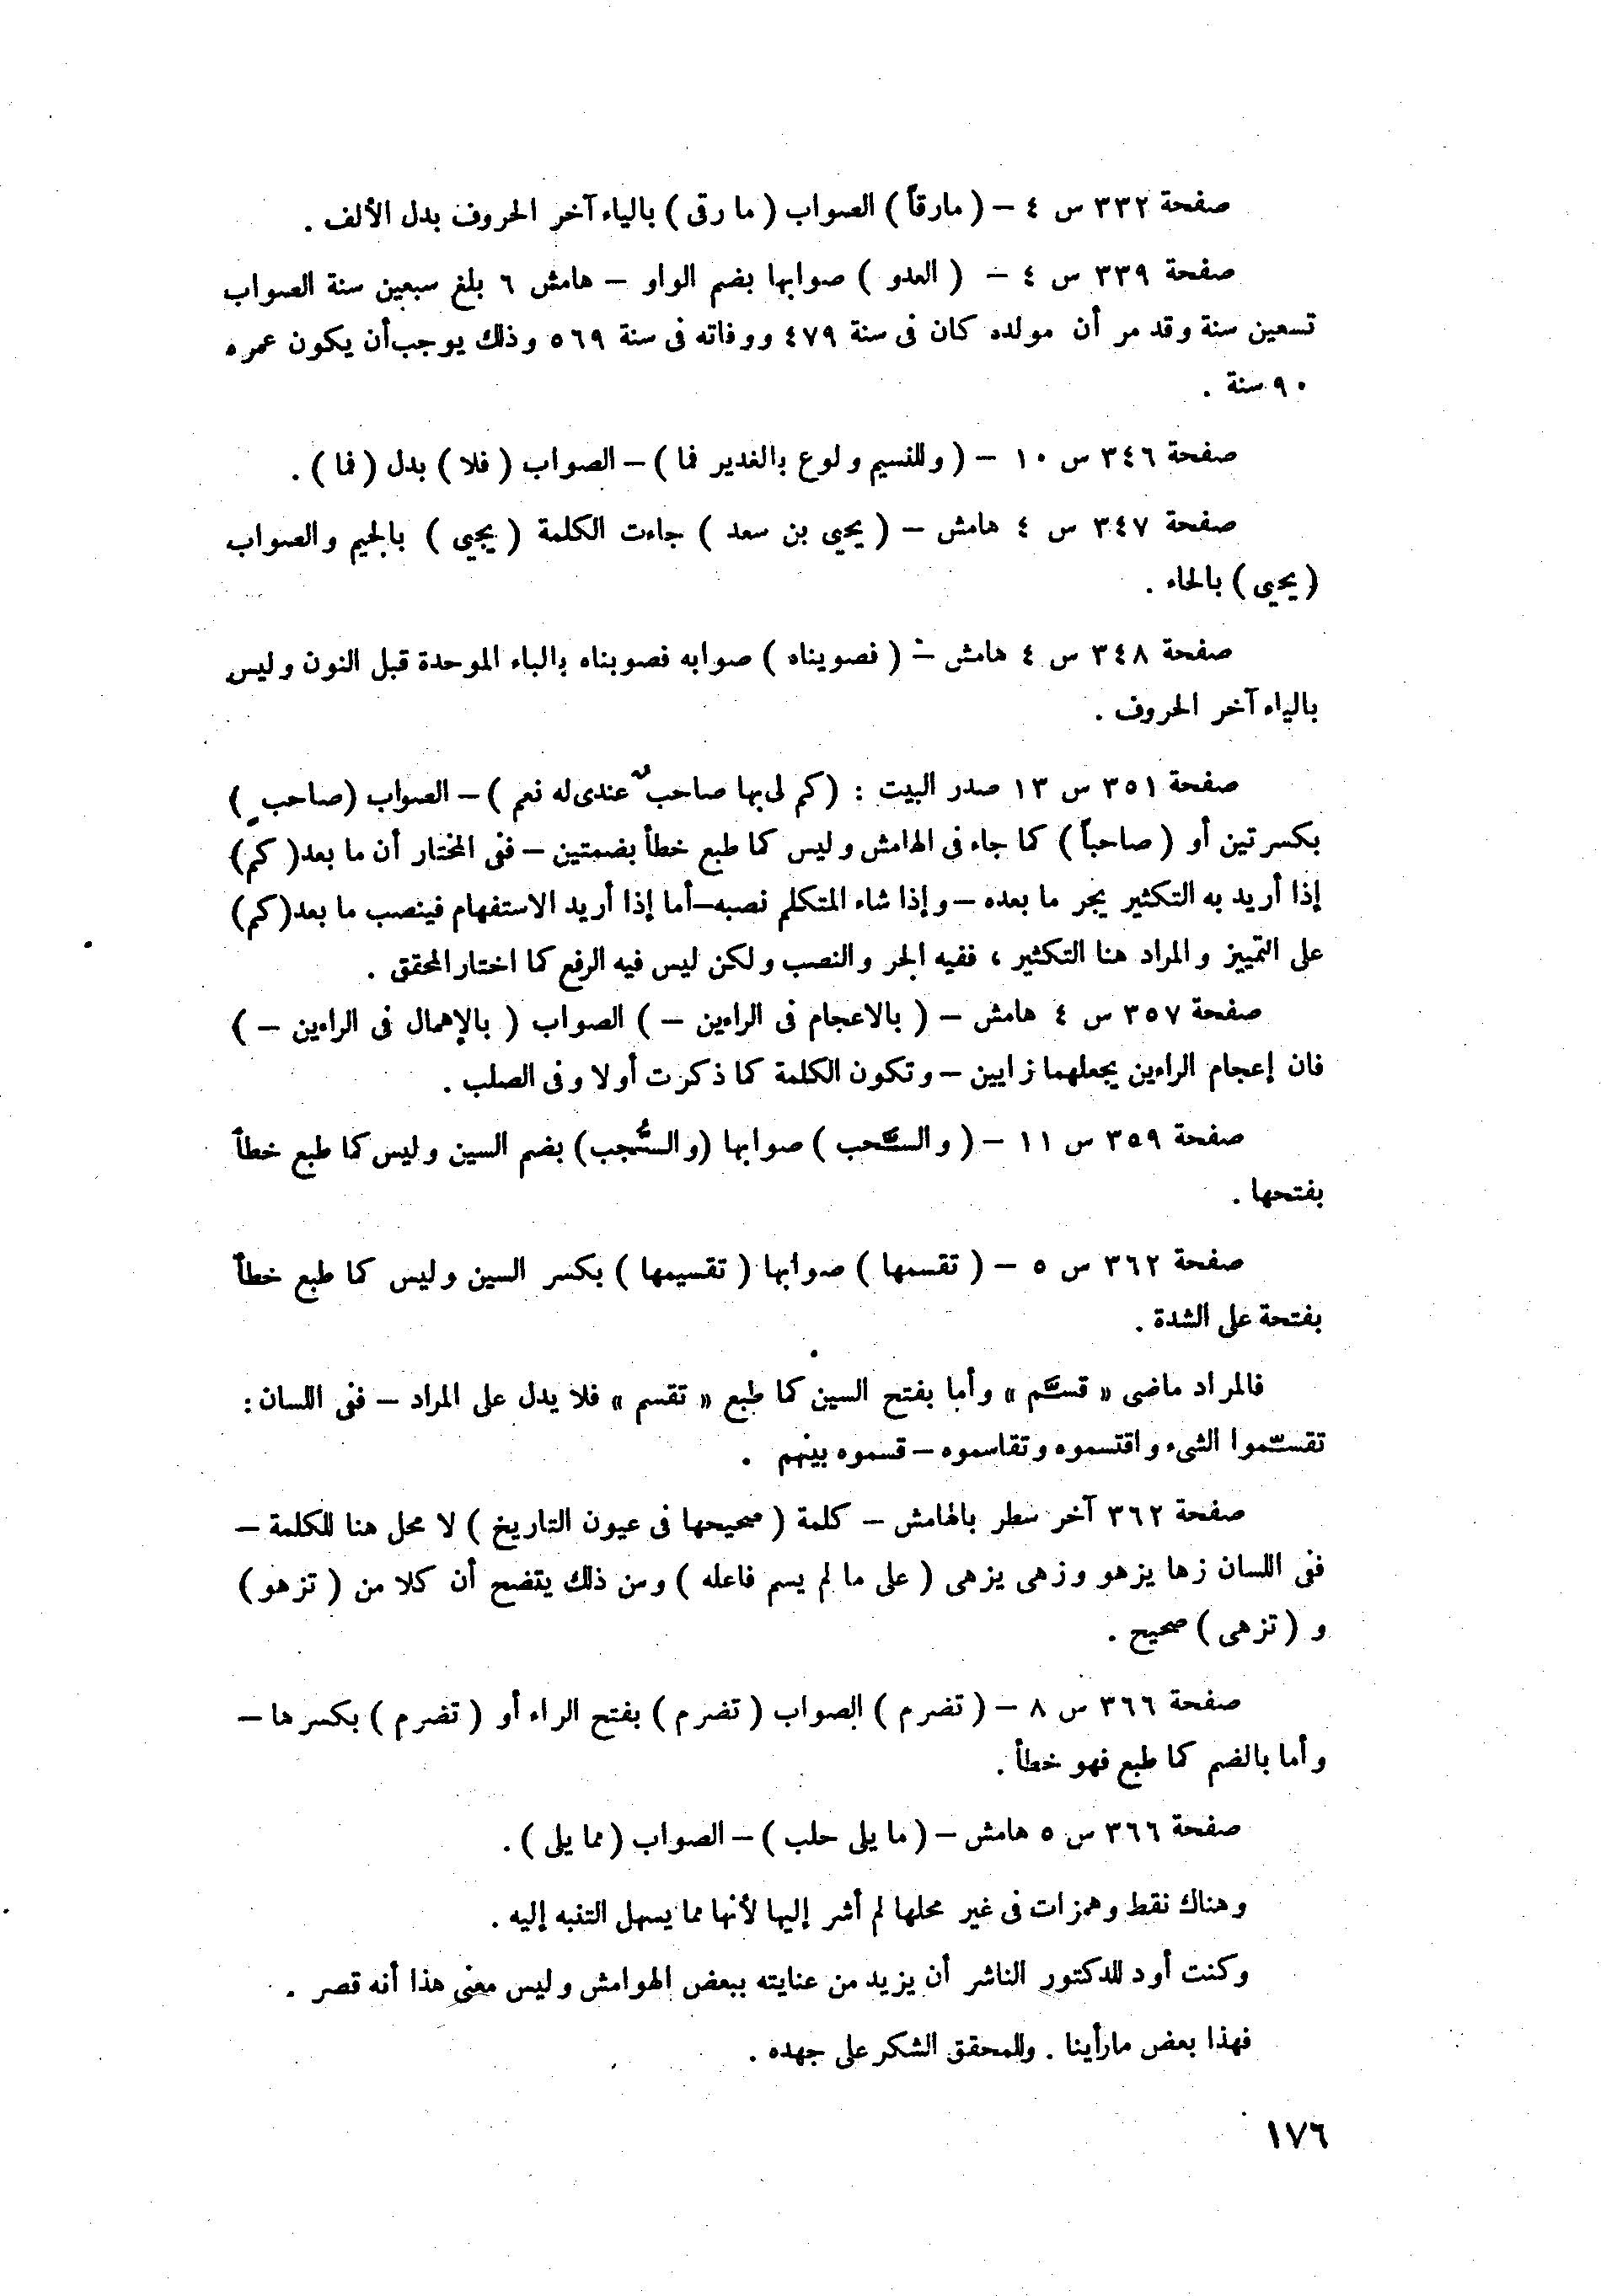 صفحة ٣٣٢ س ٤ – ( مارقاً ) الصواب ( ما رقى ) بالياء آخر الحروف بدل الألف .
صفحة ٣٣٩ س ٤ – ( العدو ) صوابها بضم الواو – هامش ٦ بلغ سبعين سنة الصواب
تسعين سنة وقد مر أن مولده كان فى سنة ٤٧٩ ووفاته فى سنة ٥٦٩ وذلك يوجب أن يكون عمره
٩٠ سنة .
صفحة ٣٤٦ س ١٠ – ( وللنسيم ولوع بالغدير فما ) – الصواب ( فلا ) بدل ( فما ) .
صفحة ٣٤٧ س ٤ هامش – ( يحيى بن سعد ) جاءت الكلمة ( يجيى ) بالجيم والصواب
( يحيى ) بالحاء .
صفحة ٣٤٨ س ٤ هامش – ( فصويناه ) صوابه فصوبناه بالباء الموحدة قبل النون وليس
بالياء آخر الحروف .
صفحة ٣٥١ س ١٣ صدر البيت : ( كم لى بها صاحبٌ عندى له نعم ) – الصواب ( صاحبٍ )
بكسرتين أو ( صاحباً ) كما جاء فى الهامش وليس كما طبع خطأ بضمتين – ففى المختار أن ما بعد ( كم )
إذا أريد به التكثير يجر ما بعده – وإذا شاء المتكلم نصبه – أما إذا أريد الاستفهام فينصب ما بعد ( كم )
على التمييز والمراد هنا التكثير ، ففيه الجر والنصب ولكن ليس فيه الرفع كما اختار المحقق .
صفحة ٣٥٧ س ٤ هامش – ( بالاعجام فى الراءين – ) الصواب ( بالإهمال فى الراءين – )
فان إعجام الراءين يجعلهما زايين – وتكون الكلمة كما ذكرت أولا وفى الصلب .
صفحة ٣٥٩ س ١١ – ( والسَّحب ) صوابها ( والسُّجب ) بضم السين وليس كما طبع خطأ
بفتحها .
صفحة ٣٦٢ س ٥ – ( تقسمها ) صوابها ( تقسيمها ) بكسر السين وليس كما طبع خطأ
بفتحة على الشدة .
فالمراد ماضى « قسَّم » وأما بفتح السين كما طبع « تقسم » فلا يدل على المراد – ففى اللسان :
تقسّموا الشىء واقتسموه وتقاسموه – قسموه بينهم .
صفحة ٣٦٢ آخر سطر بالهامش – كلمة ( صحيحها فى عيون التاريخ ) لا محل هنا للكلمة –
ففى اللسان زها يزهو وزهى يزهى ( على ما لم يسم فاعله ) ومن ذلك يتضح أن كلا من ( تزهو )
و ( تزهى ) صحيح .
صفحة ٣٦٦ س ٨ – ( تضرم ) الصواب ( تضرم ) بفتح الراء أو ( تضرم ) بكسرها –
وأما بالضم كما طبع فهو خطأ .
صفحة ٣٦٦ س ٥ هامش – ( ما يلى حلب ) – الصواب ( مما يلى ) .
وهناك نقط وهمزات فى غير محلها لم أشر إليها لأنها مما يسهل التنبه إليه .
وكنت أود للدكتور الناشر أن يزيد من عنايته ببعض الهوامش وليس معنى هذا أنه قصر .
فهذا بعض ما رأينا . وللمحقق الشكر على جهده .
١٧٦